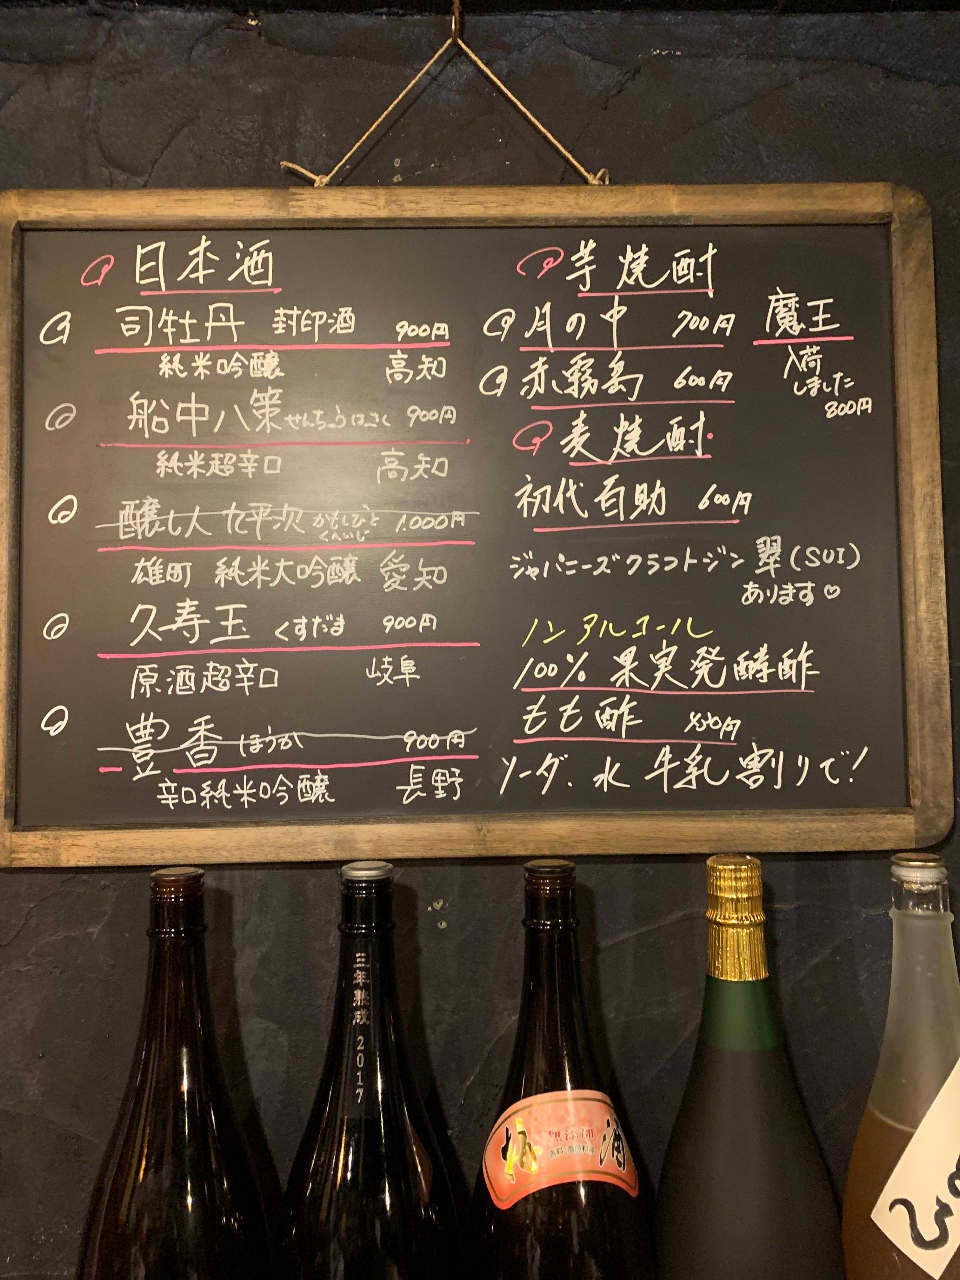 日本酒
司牡丹 封印酒 900円
純米吟醸 高知
船中八策 せんちゅうはっさく 900円
純米超辛口 高知
醸し人九平次 かもしびと くへいじ 1.000円
雄町 純米大吟醸 愛知
久寿玉 くすだま 900円
原酒超辛口 岐阜
豊香 ほうか 900円
辛口純米吟醸 長野
芋焼酎
月の中 700円
赤霧島 600円
魔王
入荷
しました
800円
麦焼酎
初代百助 600円
ジャパニーズクラフトジン 翠(SUI)
あります♡
ノンアルコール
100% 果実発酵酢
もも酢
ソーダ、水 牛乳 割りで!
三年熟成 2017
梅酒